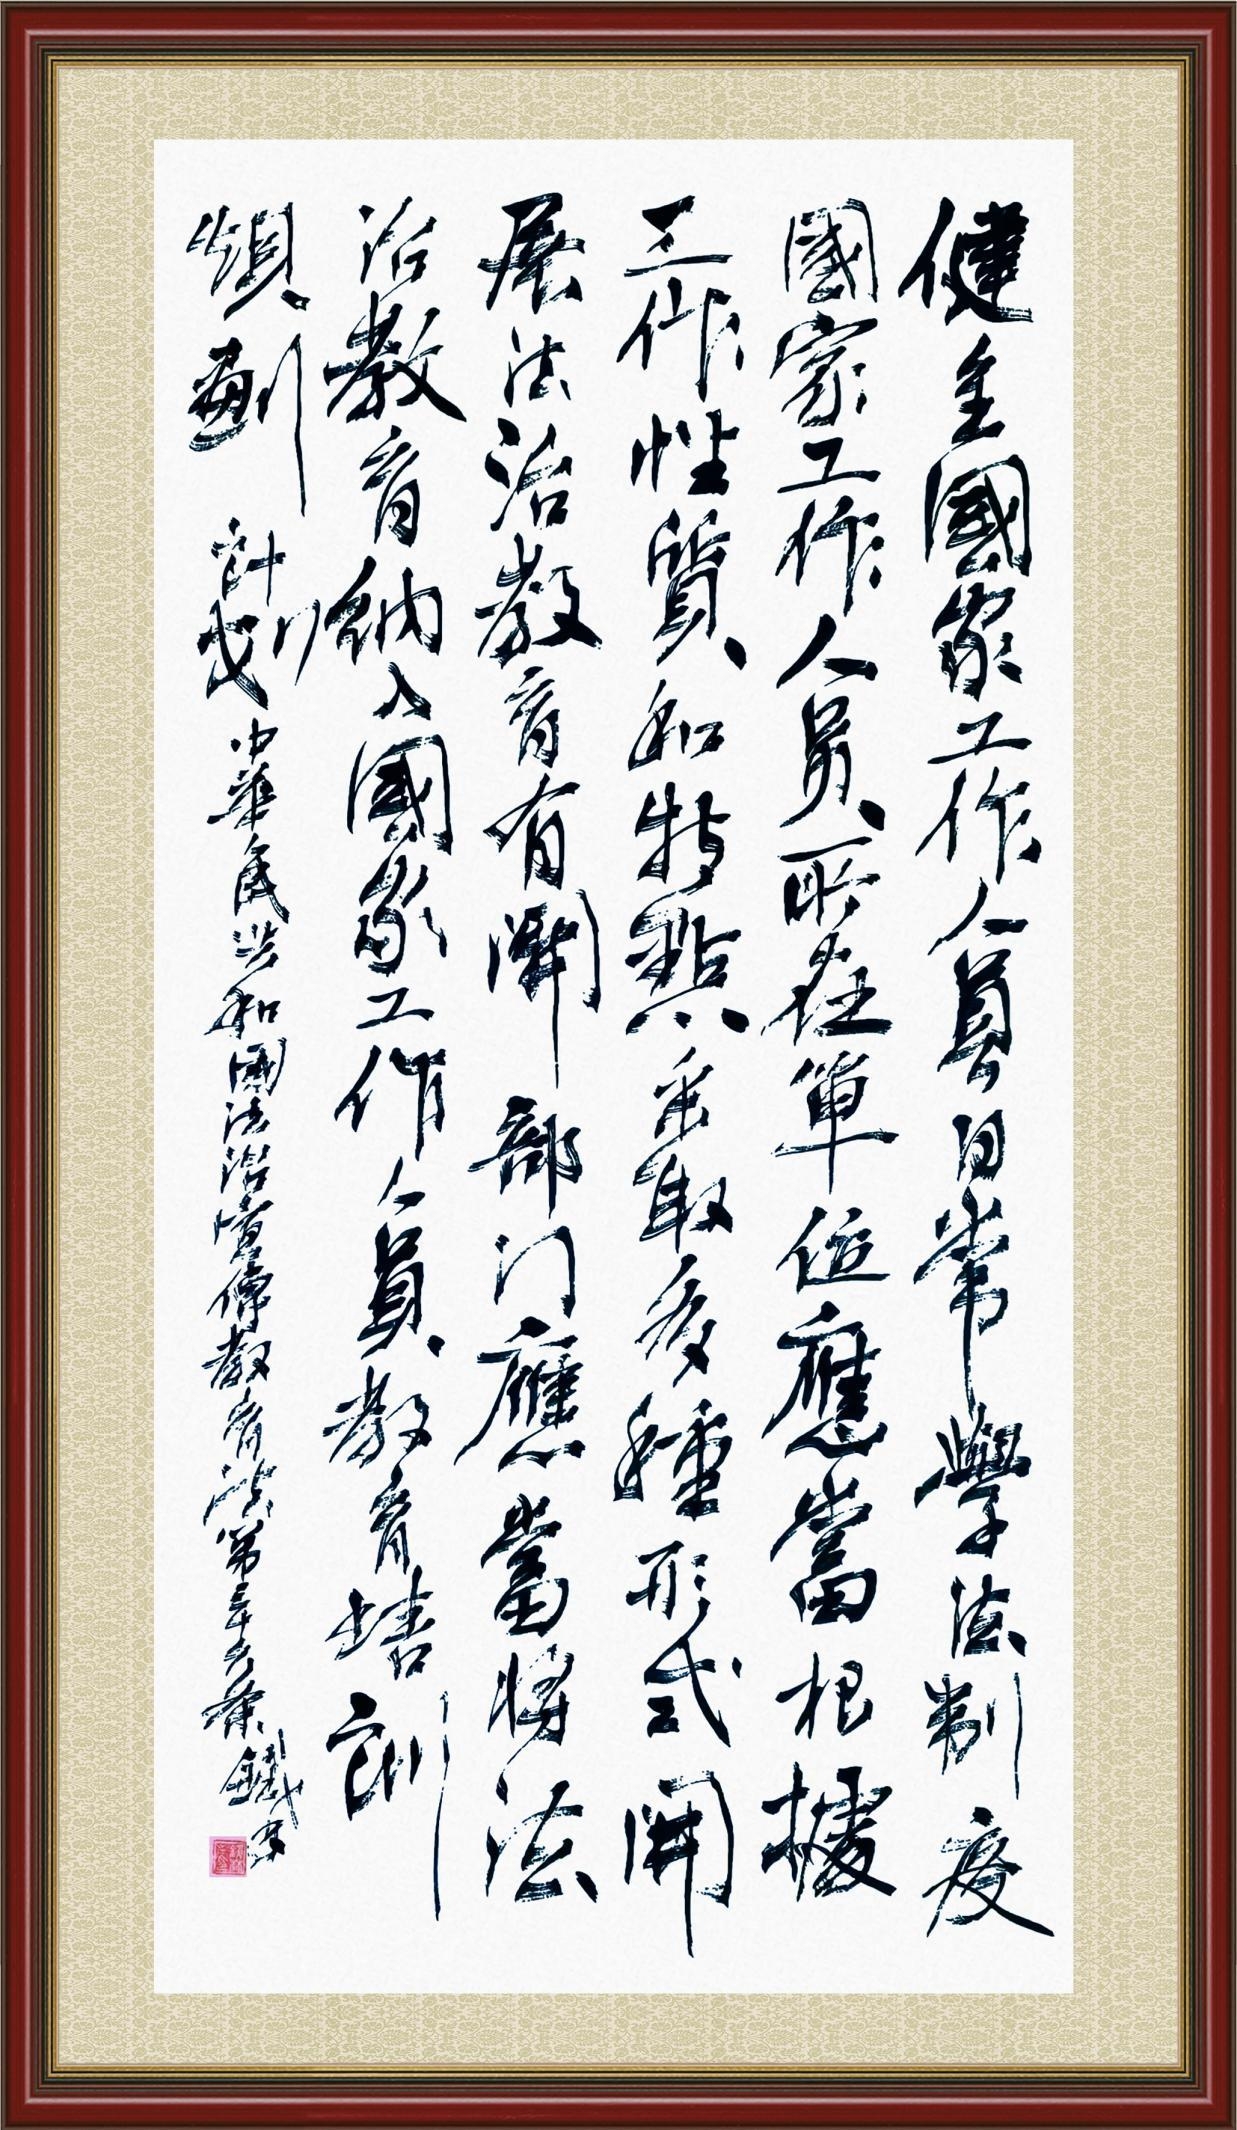 健全國家工作人員日常學法制度
國家工作人員所在單位應當根據
工作性質和特點采取多種形式開
展法治教育有關部门應當將法
治教育納入國家工作人員教育培訓
規劃計划中華人民共和國法治宣傳教育法第條